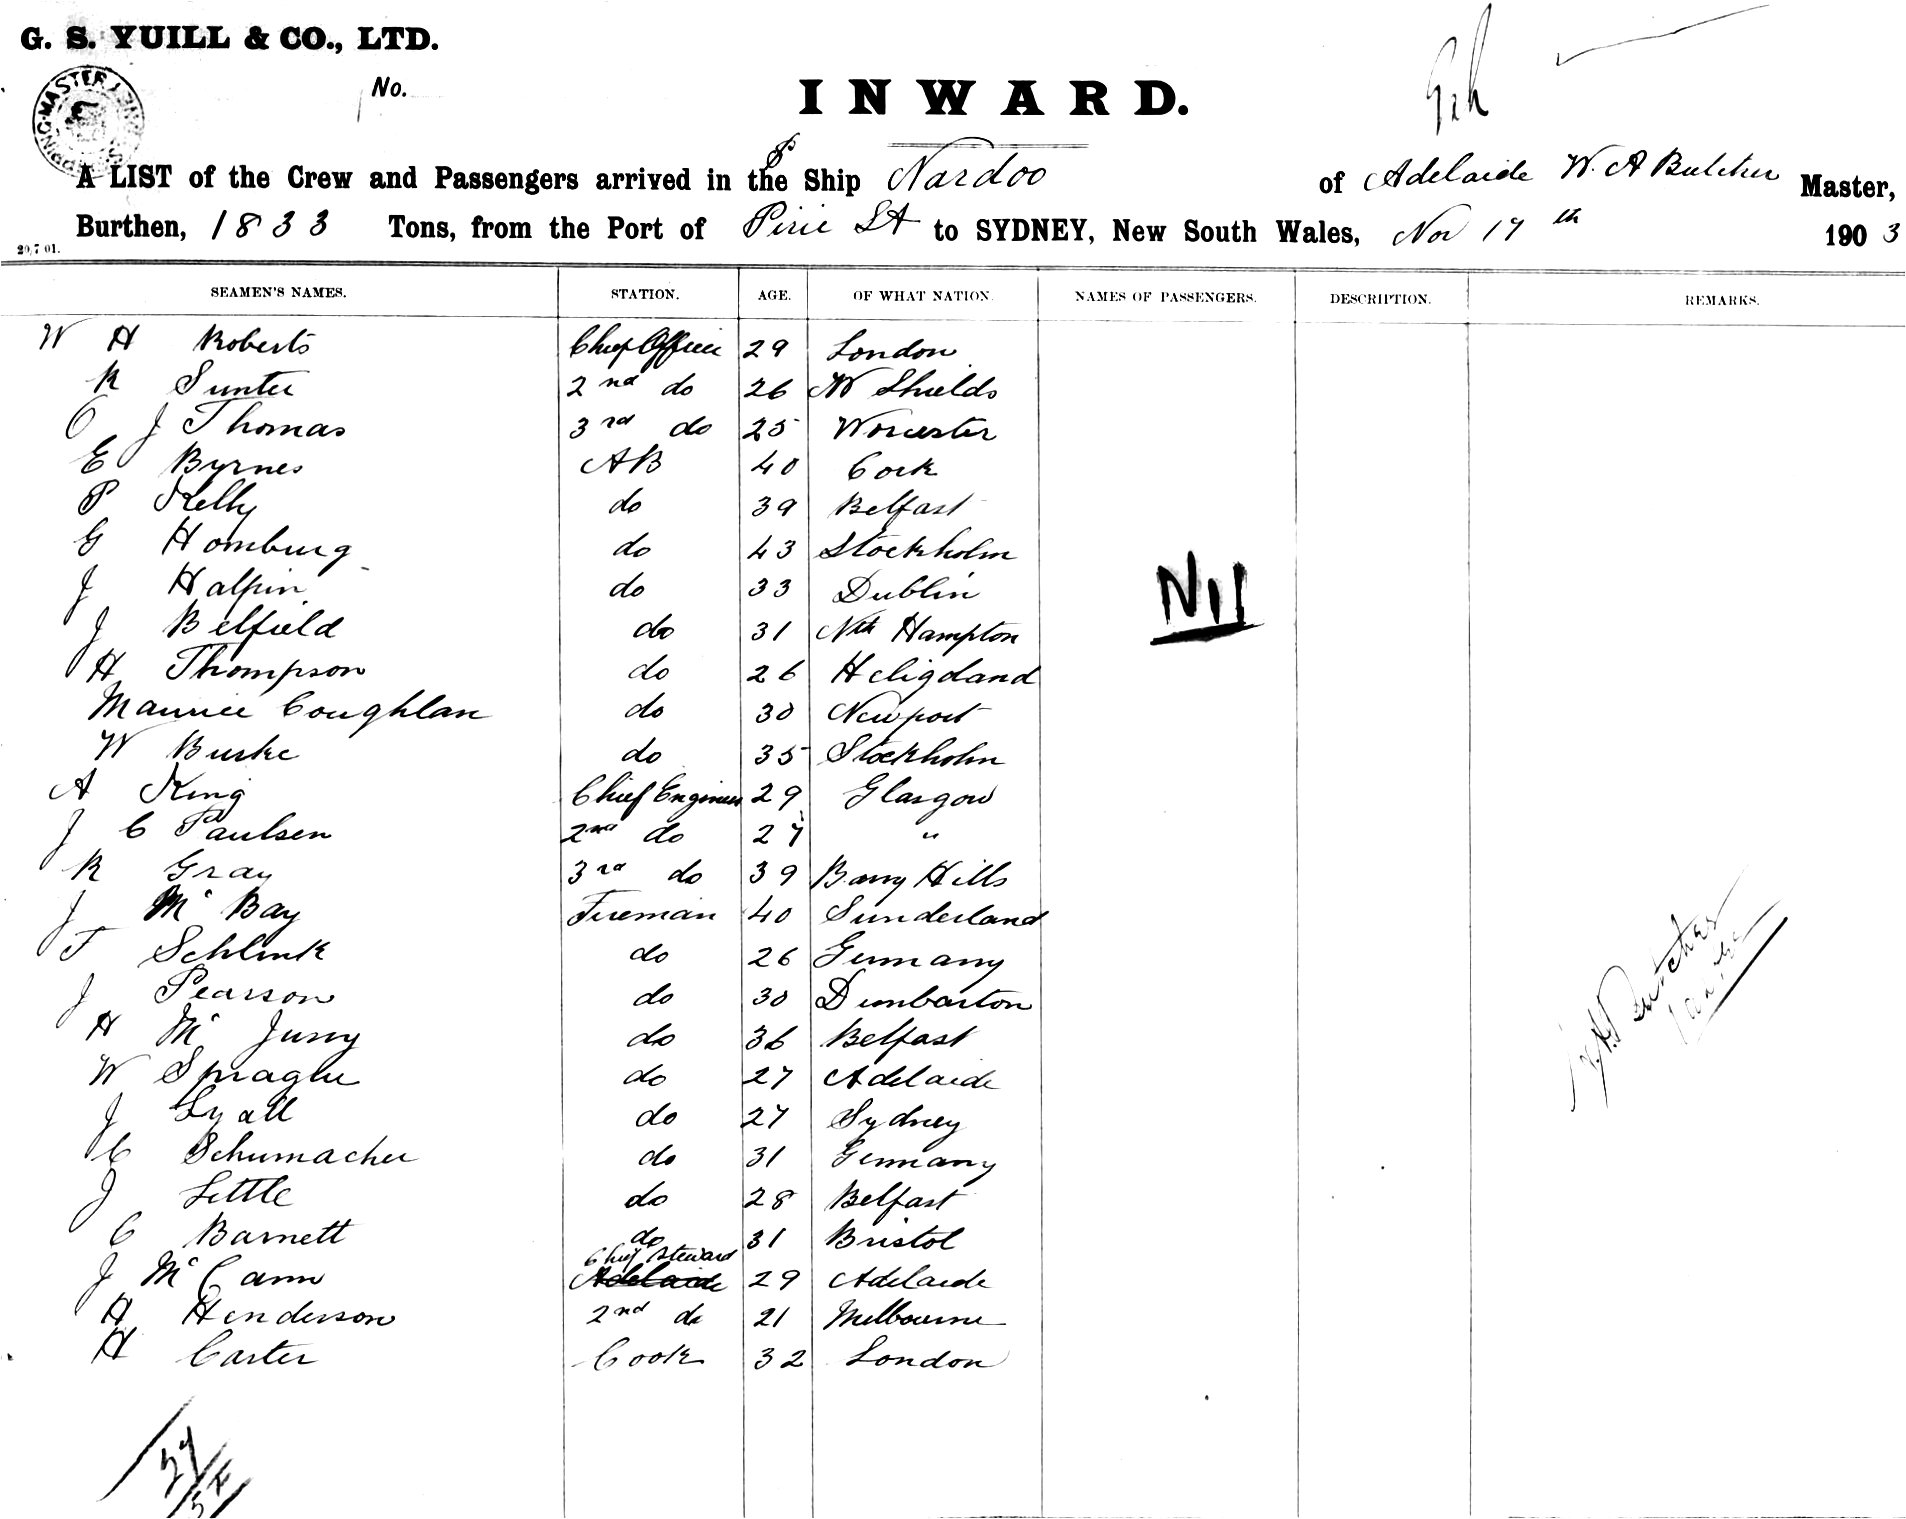 G. S. YUILL & CO., LTD.
No.
INWARD.
A LIST of the Crew and Passengers arrived in the Ship Nardoo of Adelaide W. A Butcher Master,
Burthen, 1833 Tons, from the Port of Pirie SA to SYDNEY, New South Wales, Nov 17th 1903
20/7/01.
SEAMEN'S NAMES. STATION. AGE. OF WHAT NATION. NAMES OF PASSENGERS. DESCRIPTION. REMARKS.
W H Roberts Chief Officer 29 London
R Sunter 2nd do 26 N Shields
C J Thomas 3rd do 25 Worcester
E Byrnes AB 40 Cork
P Kelly do 39 Belfast
G Homburg do 43 Stockholm
J Halpin do 33 Dublin
J Belfield do 31 Nth Hampton
H Thompson do 26 Heligoland
Maurice Coughlan do 30 Newport
W Burke do 35 Stockholm
A King Chief Engineer 29 Glasgow
J C Paulsen 2nd do 27 "
R Gray 3rd do 39 Barry Hills
J Mc Bay Fireman 40 Sunderland
T Schlink do 26 Germany
J Pearson do 30 Dumbarton
H Mc Jury do 36 Belfast
W Sprague do 27 Adelaide
J Lyall do 27 Sydney
C Schumacher do 31 Germany
J Little do 28 Belfast
C Barnett do 31 Bristol
J Mc Cann Chief Steward Adelaide 29 Adelaide
H Henderson 2nd do 21 Melbourne
H Carter Cook 32 London
Nil